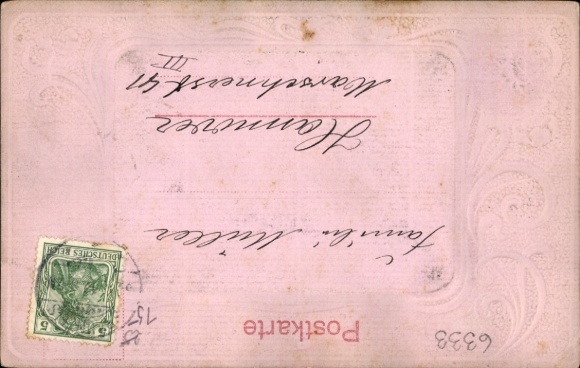 6333
Postkarte
5
DEUTSCHES REICH
Familie Müller
Hannover
Marschnerst. 41
III